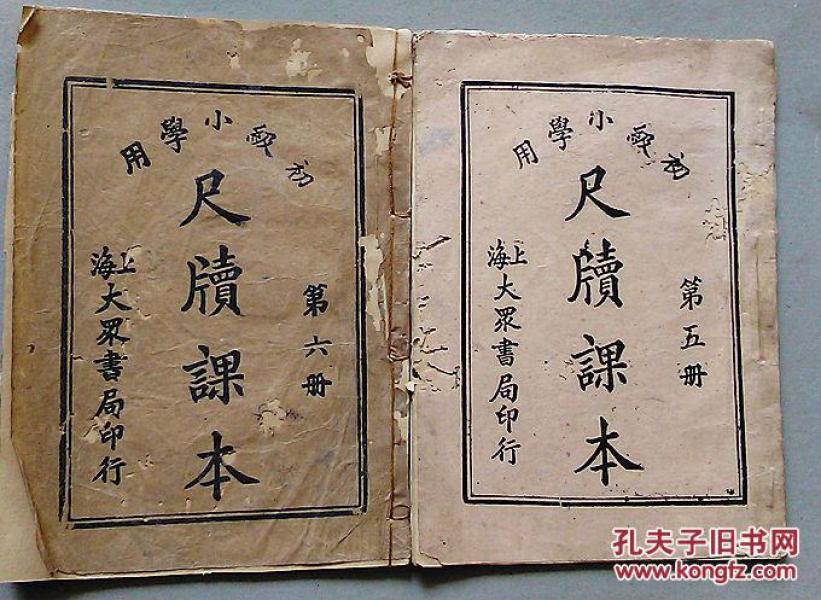 小學用
第五册
尺牘課本
上海大眾書局印行
小學用
第六册
尺牘課本
上海大眾書局印行
孔夫子旧书网
www.kongfz.com